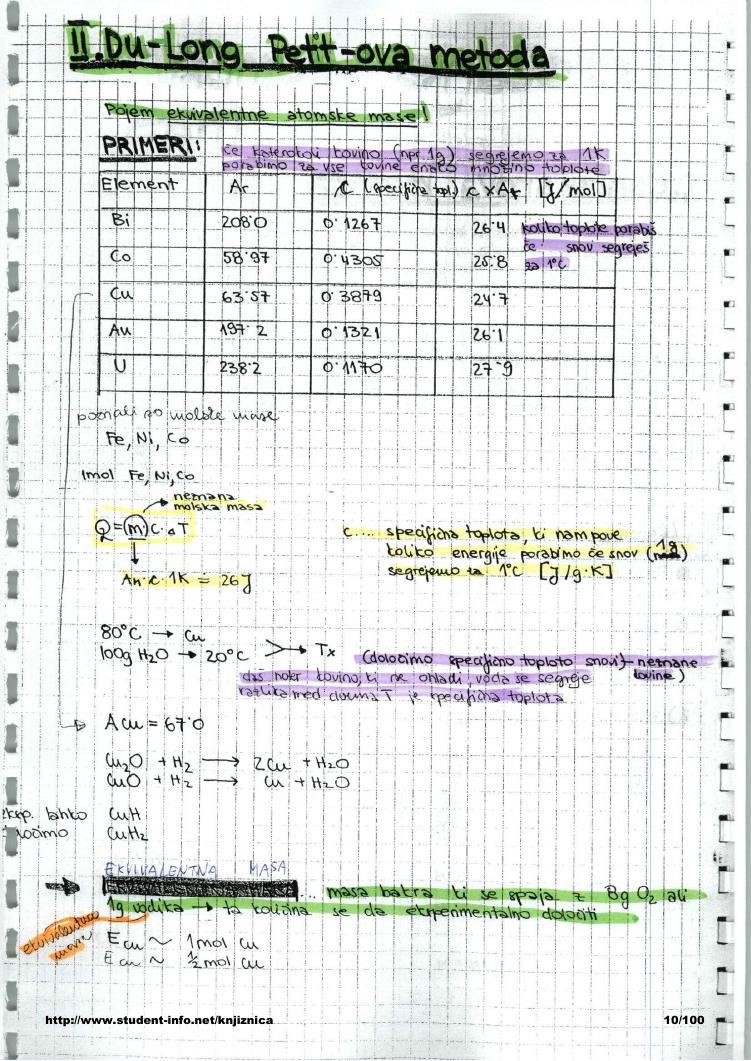 II. Du-Long Petit-ova metoda
Pojem ekvivalentne atomske mase!
PRIMERI: če katerokoli kovino (npr. 1g) segrejemo za 1K
porabimo za vse kovine enako množino toplote
Element Ar C (specifična topl.) c x Ar [J/mol]
Bi 208˙0 0˙1267 26˙4 koliko toplote porabiš
če snov segreješ
Co 58˙97 0˙4305 25˙8 za 1°C
Cu 63˙57 0˙3879 24˙7
Au 197˙2 0˙1321 26˙1
U 238˙2 0˙1170 27˙9
poznali so molske mase
Fe, Ni, Co
1mol Fe, Ni, Co
neznana
molska masa
Q = m · c · ΔT
Ar · c · 1K = 26J
c.... specifična toplota, ki nam pove
koliko energije porabimo če snov (1g)
segrejemo za 1°C [J/g·K]
80°C → Cu
100g H2O → 20°C > → Tx (določimo specifično toploto snovi) - neznane
kovine)
daš noter kovino, ki se ohladi, voda se segreje
razlika med dvema T je specifična toplota
A cu = 67˙0
Cu2O + H2 → 2Cu + H2O
CuO + H2 → Cu + H2O
eksp. lahko CuH
določimo CuH2
EKVIVALENTNA MASA
→ ... masa bakra ki se spaja z 8g O2 ali
1g vodika → ta količina se da eksperimentalno določiti
ekvivalentna
mase
E cu ~ 1mol Cu
E cu ~ 1/2 mol Cu
http://www.student-info.net/knjiznica 10/100